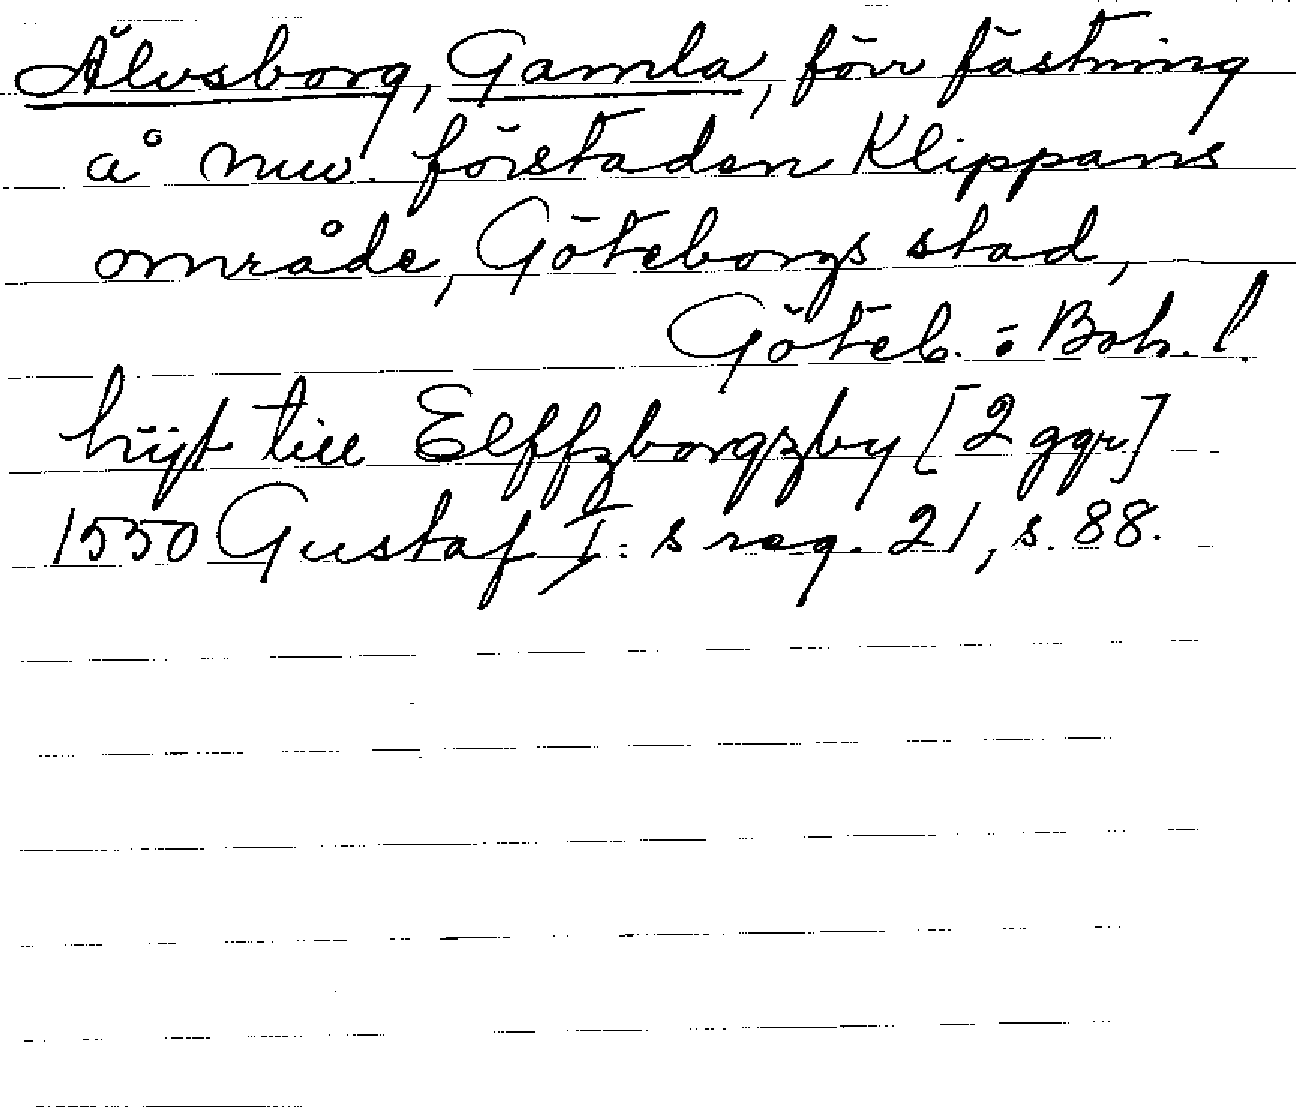 Älvsborg, Gamla, förr fästning
å nuv. förstaden Klippans
område, Göteborgs stad,
Göteb. o. Boh. l.
hijt till Elffzborgzby [2 ggr]
1550 Gustaf I: s reg. 21, s. 88.